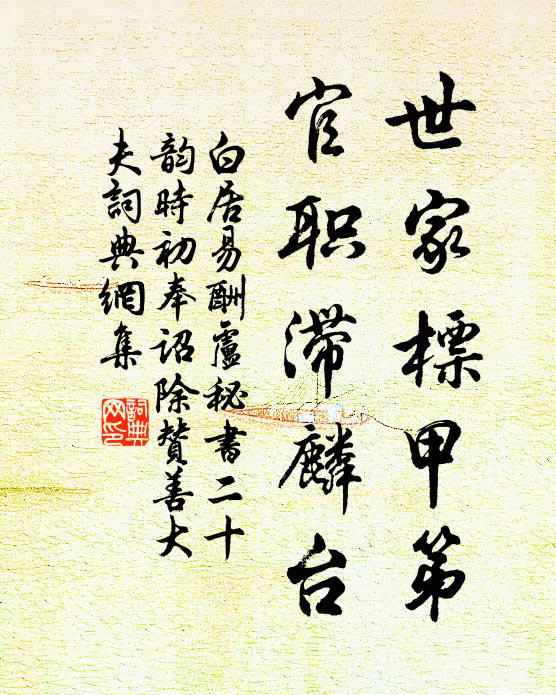 世家標甲第
官职滯麟台
白居易酬盧秘書二十
韵時初奉诏除贊善大
夫詞典網集
詞典
网印